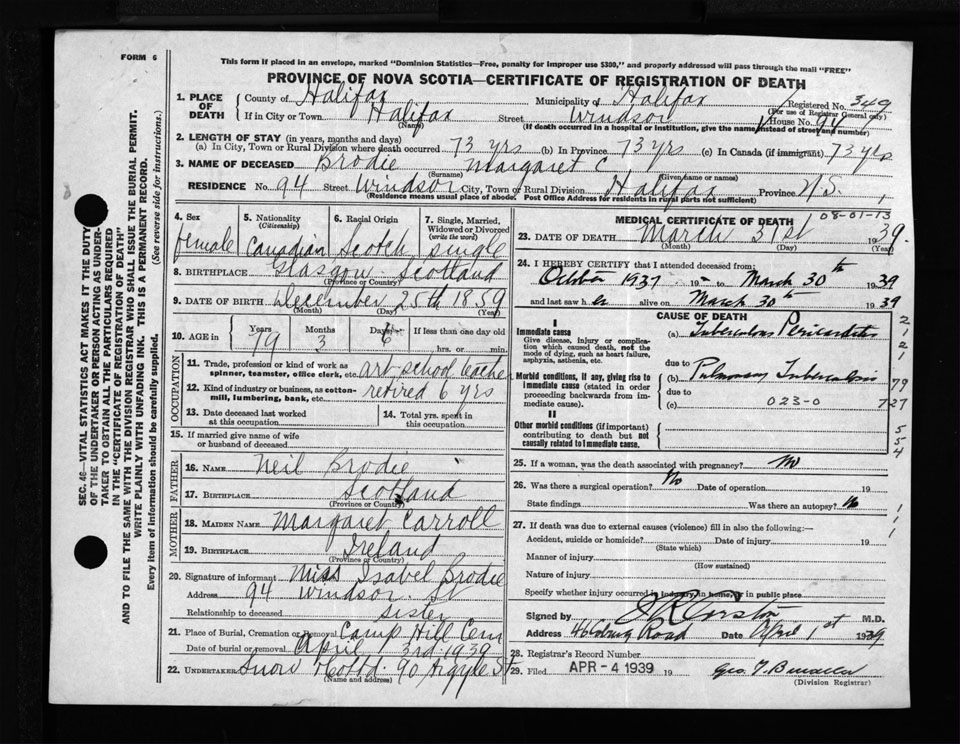 FORM 6
This form if placed in an envelope, marked "Dominion Statistics—Free, penalty for improper use $300," and properly addressed will pass through the mail "FREE"
PROVINCE OF NOVA SCOTIA—CERTIFICATE OF REGISTRATION OF DEATH
1. PLACE OF DEATH
County of Halifax Municipality of Halifax Registered No. 349
(For use of Registrar General only)
If in City or Town Halifax Street Windsor House No. 94
(Name) (If death occurred in a hospital or institution, give the name instead of street and number)
2. LENGTH OF STAY (in years, months and days)
(a) In City, Town or Rural Division where death occurred 73 yrs (b) In Province 73 yrs (c) In Canada (if immigrant) 73 yrs
3. NAME OF DECEASED Brodie Margaret C
(Surname) (Given name or names)
RESIDENCE No. 94 Street Windsor City, Town or Rural Division Halifax Province N.S.
(Residence means usual place of abode. Post Office Address for residents in rural parts not sufficient)
4. Sex
female
5. Nationality
(Citizenship)
Canadian
6. Racial Origin
Scotch
7. Single, Married, Widowed or Divorced
(write the word)
single
8. BIRTHPLACE Glasgow Scotland
(Province or Country)
9. DATE OF BIRTH December 25th 1859
(Month) (Day) (Year)
10. AGE in
Years Months Days If less than one day old
79 3 6 hrs. or min.
OCCUPATION
11. Trade, profession or kind of work as spinner, teamster, office clerk, etc. art school teacher
12. Kind of industry or business, as cotton-mill, lumbering, bank, etc. retired 6 yrs
13. Date deceased last worked at this occupation
14. Total yrs. spent in this occupation
15. If married give name of wife or husband of deceased
FATHER
16. NAME Neil Brodie
17. BIRTHPLACE Scotland
(Province or Country)
MOTHER
18. MAIDEN NAME Margaret Carroll
19. BIRTHPLACE Ireland
(Province or Country)
20. Signature of informant Miss Isabel Brodie
Address 94 Windsor St
Relationship to deceased sister
21. Place of Burial, Cremation or Removal Camp Hill Cem
Date of burial or removal April 3rd 1939
22. UNDERTAKER Snow & Co Ltd. 90 Argyle St
(Name and address)
MEDICAL CERTIFICATE OF DEATH
08-01-13
23. DATE OF DEATH March 31st 1939
(Month) (Day) (Year)
24. I HEREBY CERTIFY that I attended deceased from:
October 1937 19 – to March 30th 1939
and last saw her alive on March 30th 1939
CAUSE OF DEATH
I
Immediate cause
Give disease, injury or complication which caused death, not the mode of dying, such as heart failure, asphyxia, asthenia, etc.
(a) Tuberculous Pericarditis
due to
Morbid conditions, if any, giving rise to immediate cause (stated in order proceeding backwards from immediate cause).
(b) Pulmonary Tuberculosis
due to
(c) 023-0
II
Other morbid conditions (if important) contributing to death but not causally related to immediate cause.
2
1
2
1
79
727
5
5
4
25. If a woman, was the death associated with pregnancy? No
26. Was there a surgical operation? No Date of operation 19
State findings Was there an autopsy? No
27. If death was due to external causes (violence) fill in also the following:—
Accident, suicide or homicide? Date of injury 19
(State which)
Manner of injury
(How sustained)
Nature of injury
Specify whether injury occurred in industry, in home, or in public place
1
1
1
Signed by M.D.
Address 46 Coburg Road Date April 1st 1939
28. Registrar's Record Number
29. Filed APR - 4 1939 19
(Division Registrar)
SEC. 46—VITAL STATISTICS ACT MAKES IT THE DUTY OF THE UNDERTAKER OR PERSON ACTING AS UNDERTAKER TO OBTAIN ALL THE PARTICULARS REQUIRED IN THE "CERTIFICATE OF REGISTRATION OF DEATH"
AND TO FILE THE SAME WITH THE DIVISION REGISTRAR WHO SHALL ISSUE THE BURIAL PERMIT.
WRITE PLAINLY WITH UNFADING INK. THIS IS A PERMANENT RECORD.
Every item of information should be carefully supplied. (See reverse side for instructions.)